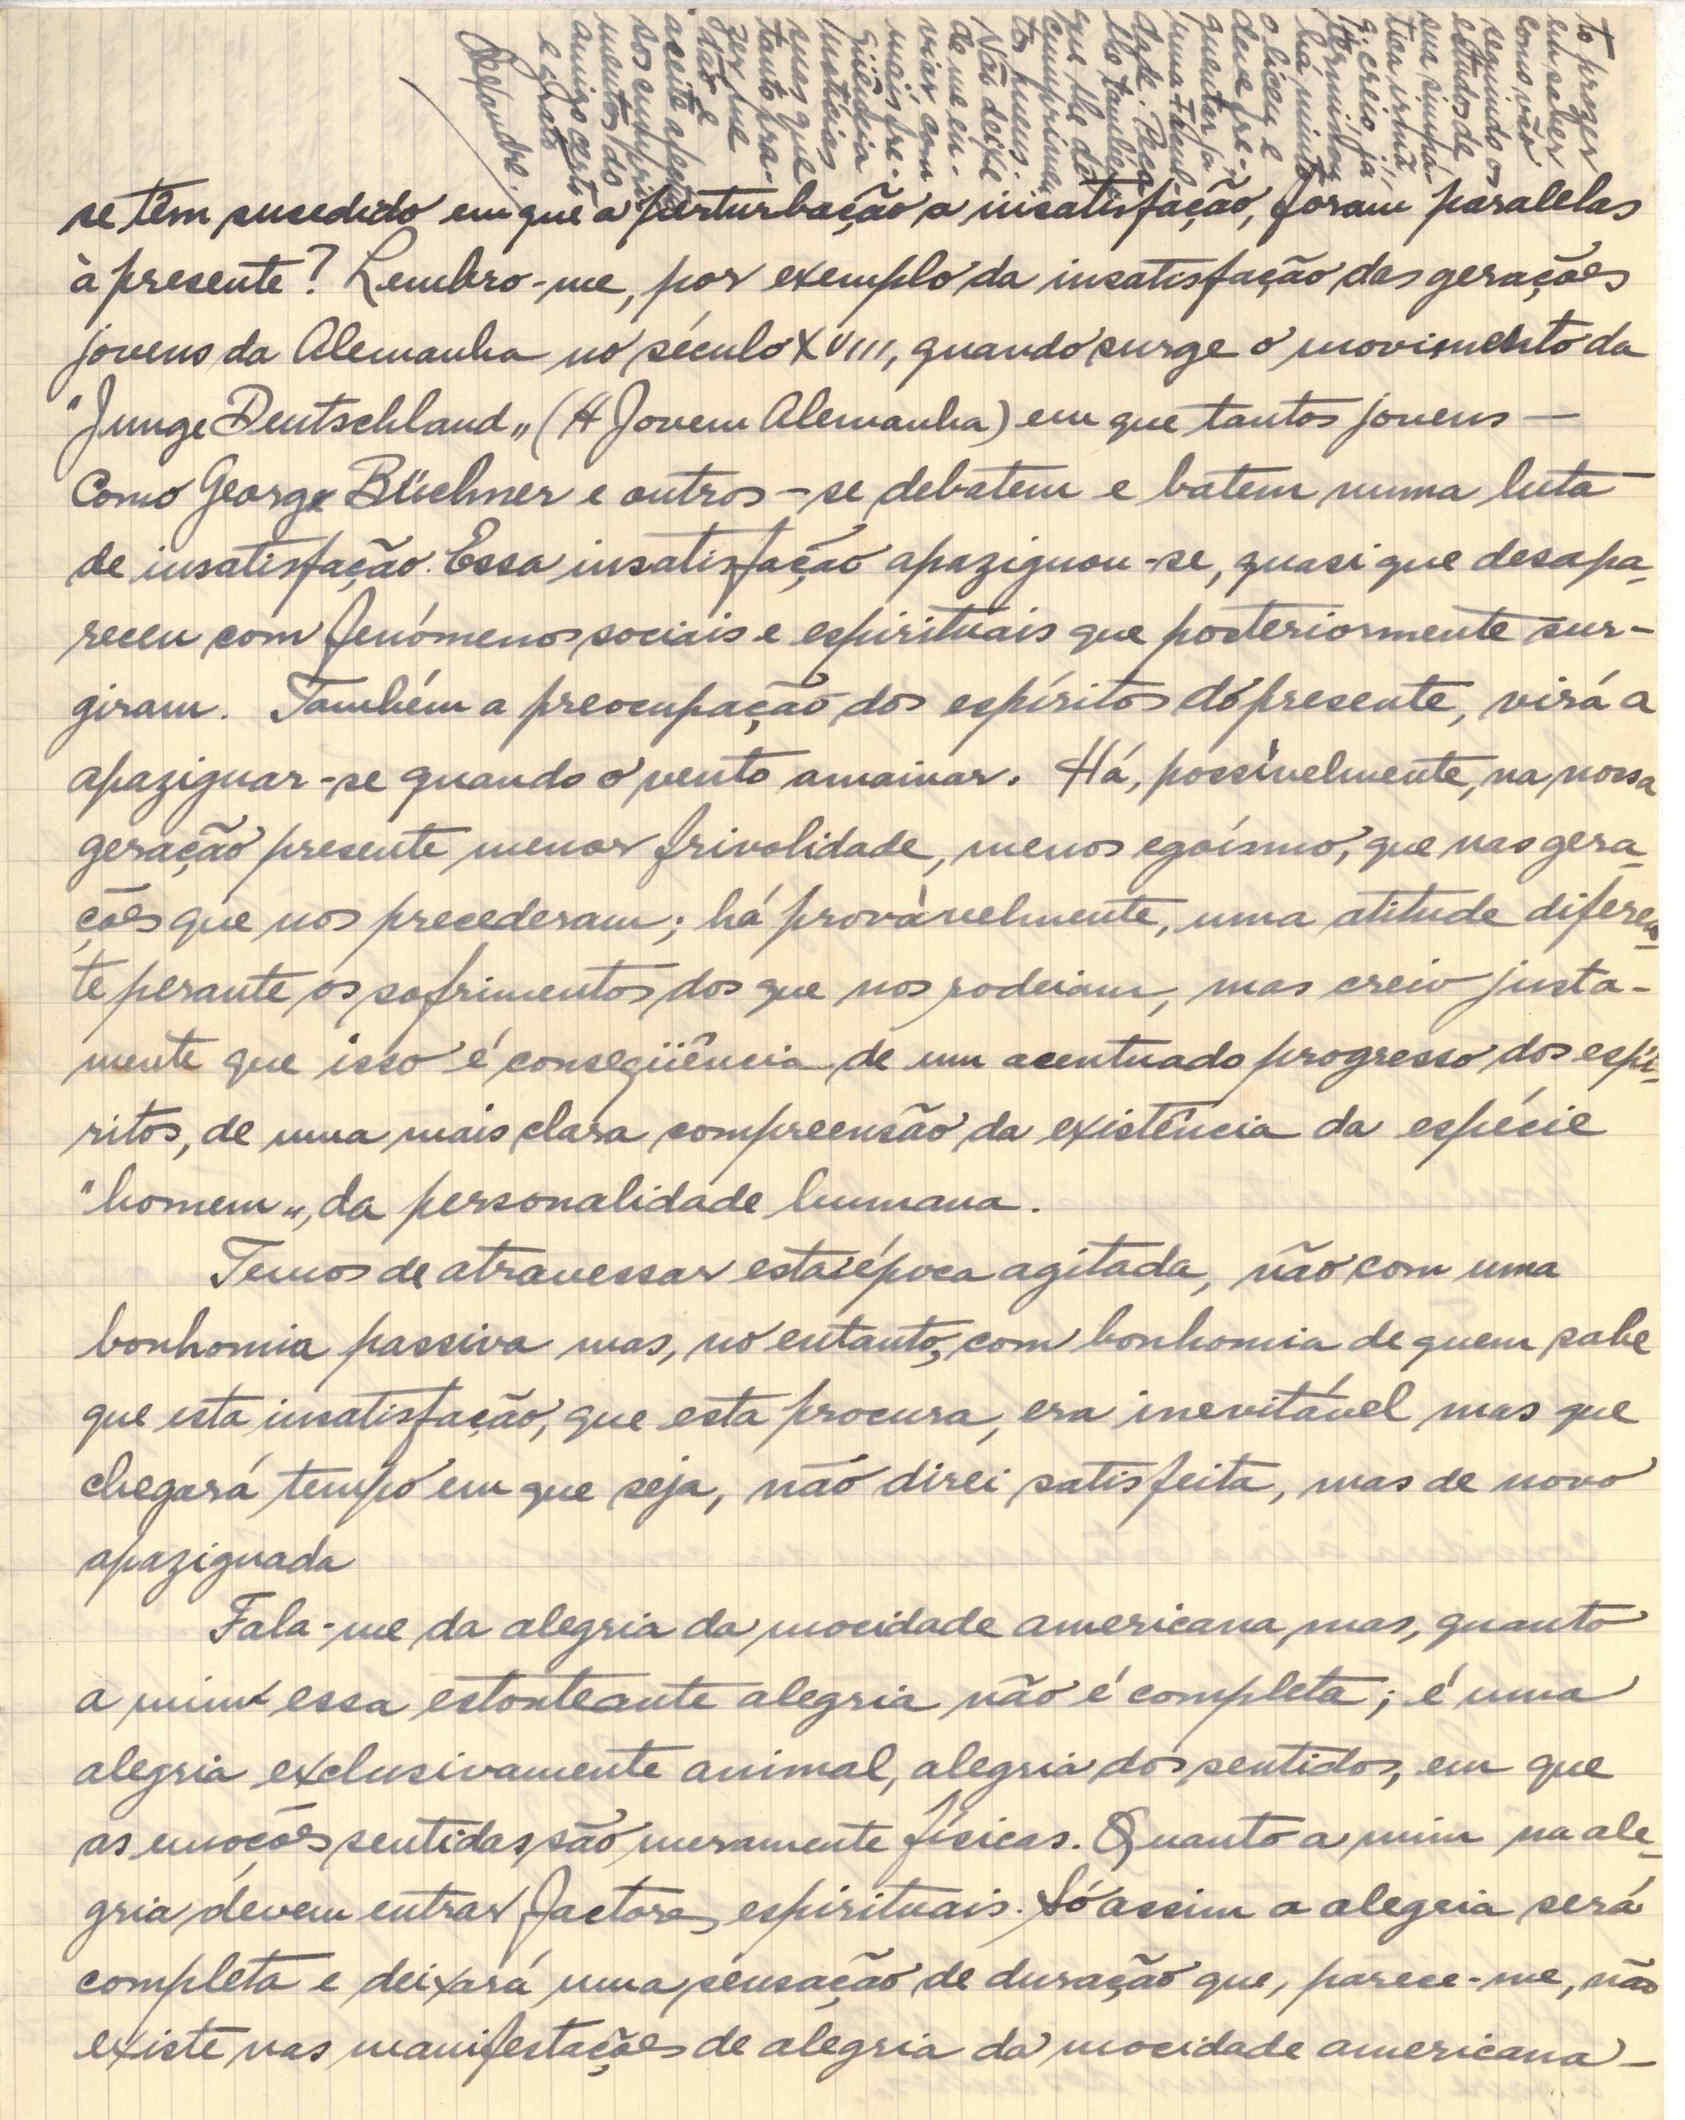 to prazer
em saber
como vão
seguindo os
estudos de
sua simpá-
tica irmã,
q. creio já
terminou
há muito
o liceu e
deve fre-
quentar já
uma Facul-
dade. Peço-
lhe também
que lhe dê
cumprimen-
tos meus.
Não deixe
de me en-
viar com
mais fre-
qüência
notícias
suas que
tanto pra-
zer me
dão e
aceite afect
os cumpri-
mentos do
amigo certo
e grato
Alexandre.
se têm sucedido em que a perturbação a insatisfação, foram paralelas
à presente? Lembro-me, por exemplo da insatisfação das gerações
jovens da Alemanha no século XVIII, quando surge o movimento da
"Junge Deutschland„ (A Jovem Alemanha) em que tantos jovens —
Como George Büchner e outros — se debatem e batem numa luta
de insatisfação. Essa insatisfação apaziguou-se, quasi que desapa-
receu com fenómenos sociais e espirituais que posteriormente sur-
giram. Também a preocupação dos espíritos do presente, virá a
apaziguar-se quando o vento amainar. Há, possìvelmente, na nossa
geração presente menor frivolidade, menos egoísmo, que nas gera-
ções que nos precederam; há provàvelmente, uma atitude diferen-
te perante os sofrimentos dos que nos rodeiam, mas creio justa-
mente que isso é conseqüência de um acentuado progresso dos espí-
ritos, de uma mais clara compreensão da existência da espécie
"homem„, da personalidade humana.
Temos de atravessar esta época agitada, não com uma
bonhomia passiva mas, no entanto, com bonhomia de quem sabe
que esta insatisfação, que esta procura, era inevitável mas que
chegará tempo em que seja, não direi satisfeita, mas de novo
apaziguada
Fala-me da alegria da mocidade americana, mas, quanto
a mim essa estonteante alegria não é completa; é uma
alegria exclusivamente animal, alegria dos sentidos, em que
as emoções sentidas são meramente físicas. Quanto a mim na ale-
gria devem entrar factores espirituais. Só assim a alegria será
completa e deixará uma sensação de duração que, parece-me, não
existe nas manifestações de alegria da mocidade americana —